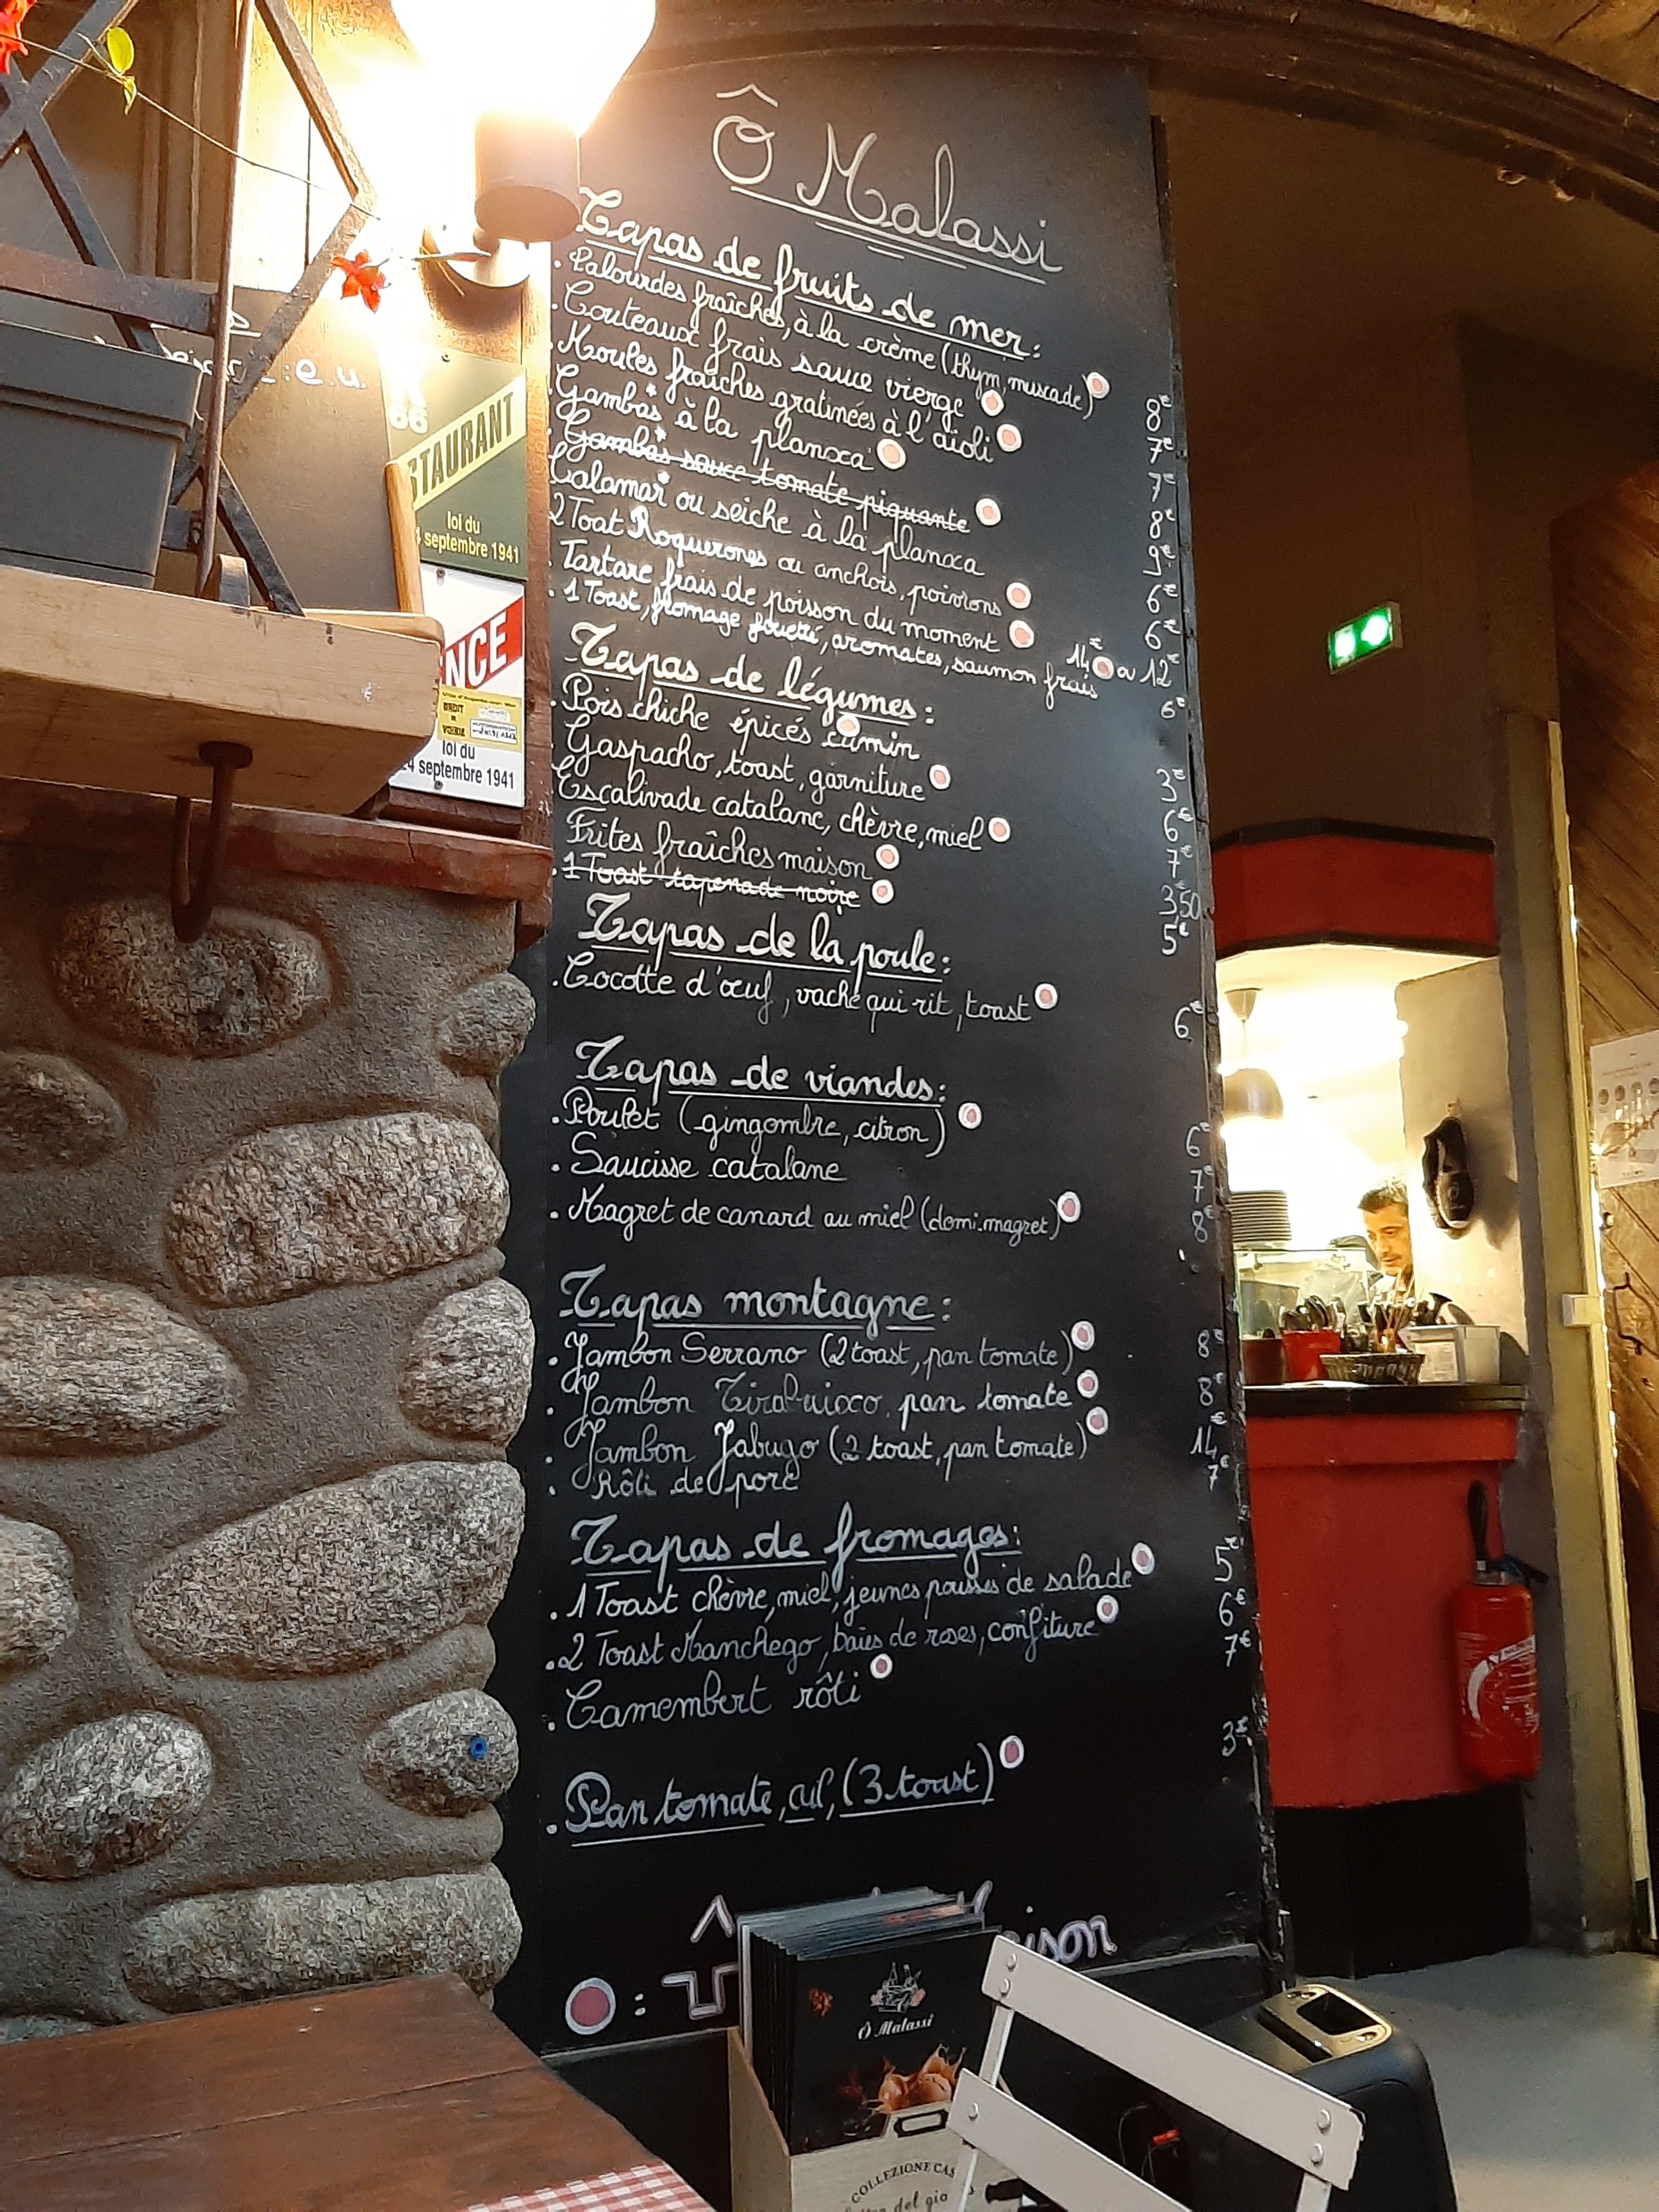 Ô Malassi
Tapas de fruits de mer:
. Palourdes fraîches, à la crème (thym, muscade) 8€
. Couteaux frais sauce vierge 7€
. Moules fraîches gratinées à l'aïoli 7€
. Gambas* à la planxa 8€
. Gambas* sauce tomate piquante 9€
Calamar* ou seiche à la planxa 6€
2 Toat Moquerones ou anchois, poivrons 6€
Tartare frais de poisson du moment 14€ ou 12€
. 1 Toast, fromage fouetté, aromates, saumon frais 6€
Tapas de légumes:
. Pois chiche épicés cumin 3€
Gaspacho, toast, garniture 6€
Escalivade catalane, chèvre, miel 7€
Frites fraîches maison 3,50€
. 1 Toast tapenade noire 5€
Tapas de la poule:
. Cocotte d'œuf, vache qui rit, toast 6€
Tapas de viandes:
. Poulet (gingombre, citron) 6€
. Saucisse catalane 7€
. Magret de canard au miel (demi.magret) 8€
Tapas montagne:
. Jambon Serrano (2 toast, pan tomate) 8€
. Jambon pan tomate 8€
. Jambon Jabugo (2 toast, pan tomate) 14€
. Rôti de porc 7€
Tapas de fromages:
. 1 Toast chèvre, miel, jeunes pousses de salade 5€
. 2 Toast Manchego, baies de roses, confiture 6€
. Camembert rôti 7€
. Pan tomate, ail, (3 toast) 3€
:
ison
e.u.
66
STAURANT
loi du
septembre 1941
NCE
loi du
24 septembre 1941
Ô Malassi
COLLEZIONE CAS
del gio